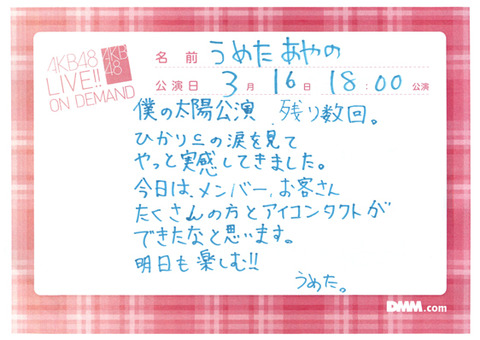 AKB48
LIVE!!
ON DEMAND
AKB
48
名前 うめたあやの
公演日 3月16日 18:00 公演
僕の太陽公演 残り数回。
ひかりᄃの涙を見て
やっと実感してきました。
今日は、メンバー、お客さん
たくさんの方とアイコンタクトが
できたなと思います。
明日も楽しむ!!
うめた。
DMM.com